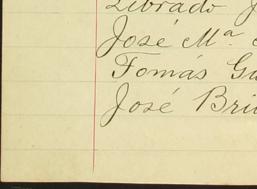 Librado
José Mª
Tomás
José